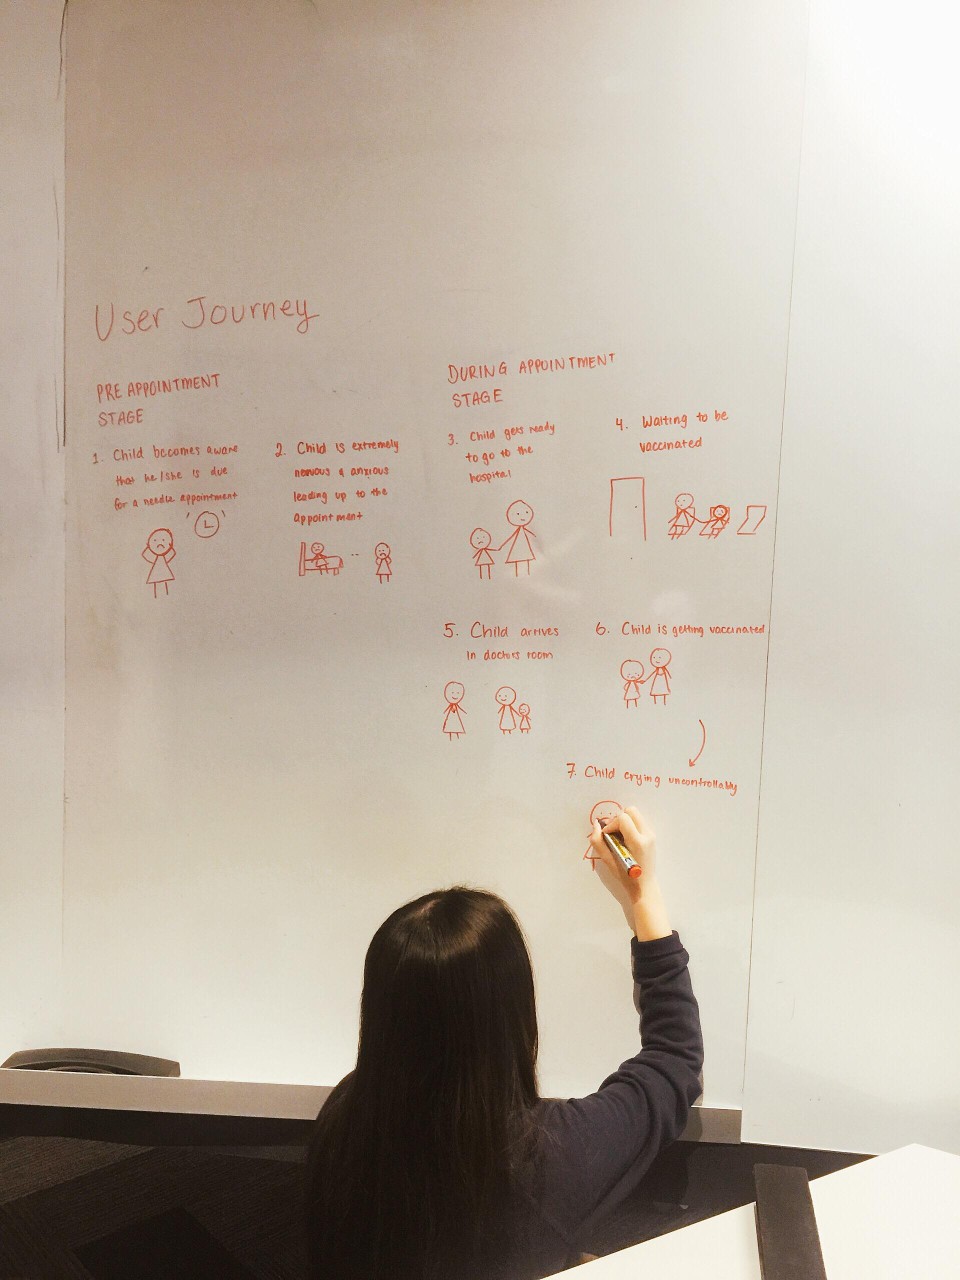 User Journey
PRE APPOINTMENT
STAGE
1. Child becomes aware
that he/she is due
for a needle appointment
2. Child is extremely
nervous & anxious
leading up to the
appointment
DURING APPOINTMENT
STAGE
3. Child gets ready
to go to the
hospital
4. Waiting to be
vaccinated
5. Child arrives
in doctors room
6. Child is getting vaccinated
7. Child crying uncontrollably